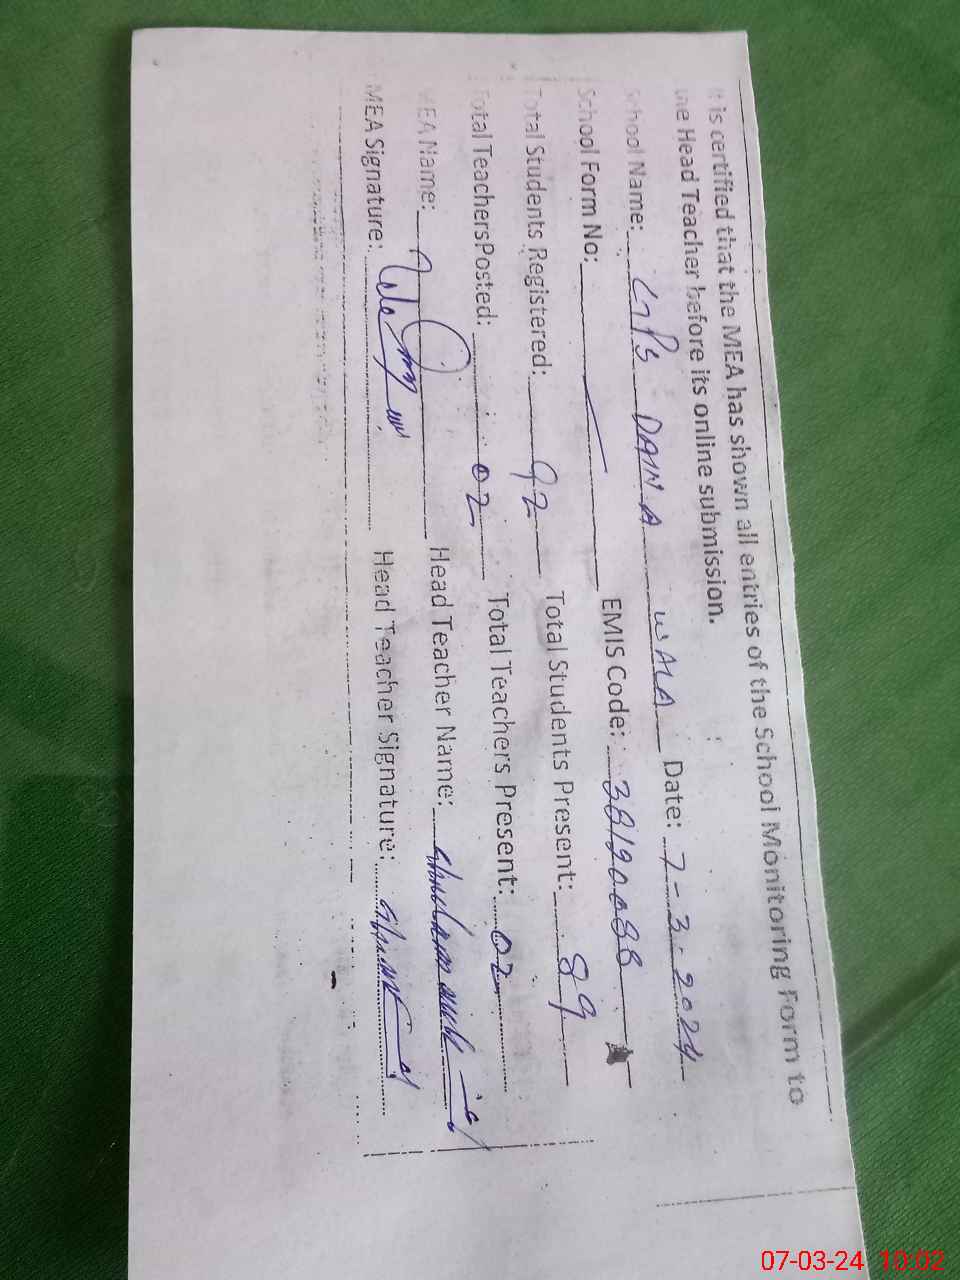 It is certified that the MEA has shown all entries of the School Monitoring Form to
the Head Teacher before its online submission.
School Name: GPS DAINA WALA Date: 7-3-2024
School Form No: EMIS Code: 38190088
Total Students Registered: 92 Total Students Present: 89
Total TeachersPosted: 02 Total Teachers Present: 02
MEA Name: Head Teacher Name:
MEA Signature: Head Teacher Signature:
07-03-24 10:02